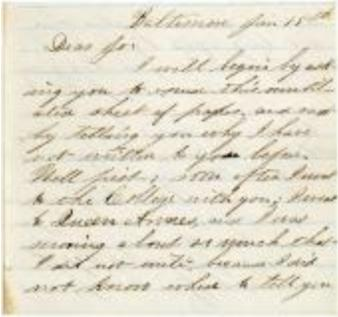 Baltimore Jan 15th
Dear Jo:
I will begin by ask
ing you to excuse this mutil
ated sheet of paper, and not
by telling you why I have
not written to you before.
Well first, soon after I was
to the College with you; I went
to Queen Annes, and I was
moving about so much that
I did not write, because I did
not know where to tell you